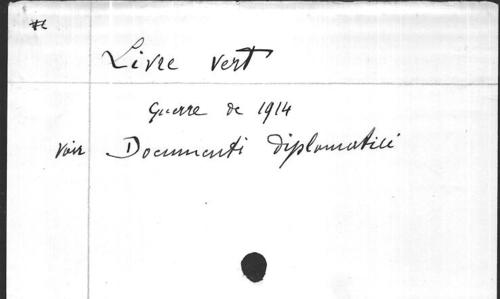 Livre vert
Guerre de 1914
voir Documenti diplomatici